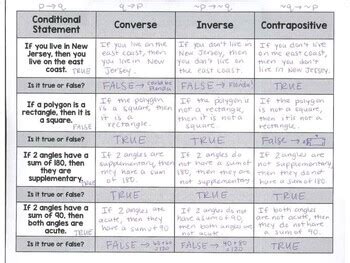 p → q
q → p
~p → ~q
~q → ~p
Conditional Statement
Converse
Inverse
Contrapositive
If you live in New Jersey, then you live on the east coast. TRUE
If you live on the east coast, then you live in New Jersey.
If you don't live in New Jersey, then you don't live on the east coast.
If you don't live on the east coast, then you don't live in New Jersey.
Is it true or false?
FALSE → could be Florida
FALSE → Florida
TRUE
If a polygon is a rectangle, then it is a square. FALSE
If the polygon is a square, then it is a rectangle.
If the polygon is not a rectangle, then it is not a square.
If the polygon is not a square, then it is not a rectangle.
Is it true or false?
TRUE
TRUE
FALSE →
If 2 angles have a sum of 180, then they are supplementary. TRUE
If 2 angles are supplementary, then they have a sum of 180.
If 2 angles do not have a sum of 180, then they are not supplementary.
If 2 angles are not supplementary, then they do not have a sum of 180.
Is it true or false?
TRUE
TRUE
TRUE
If 2 angles have a sum of 90, then both angles are acute. TRUE
If 2 angles are acute, then they have a sum of 90.
If 2 angles do not have a sum of 90, then both angles are not acute.
If both angles are not acute, then they do not have a sum of 90.
Is it true or false?
FALSE →
FALSE →
TRUE